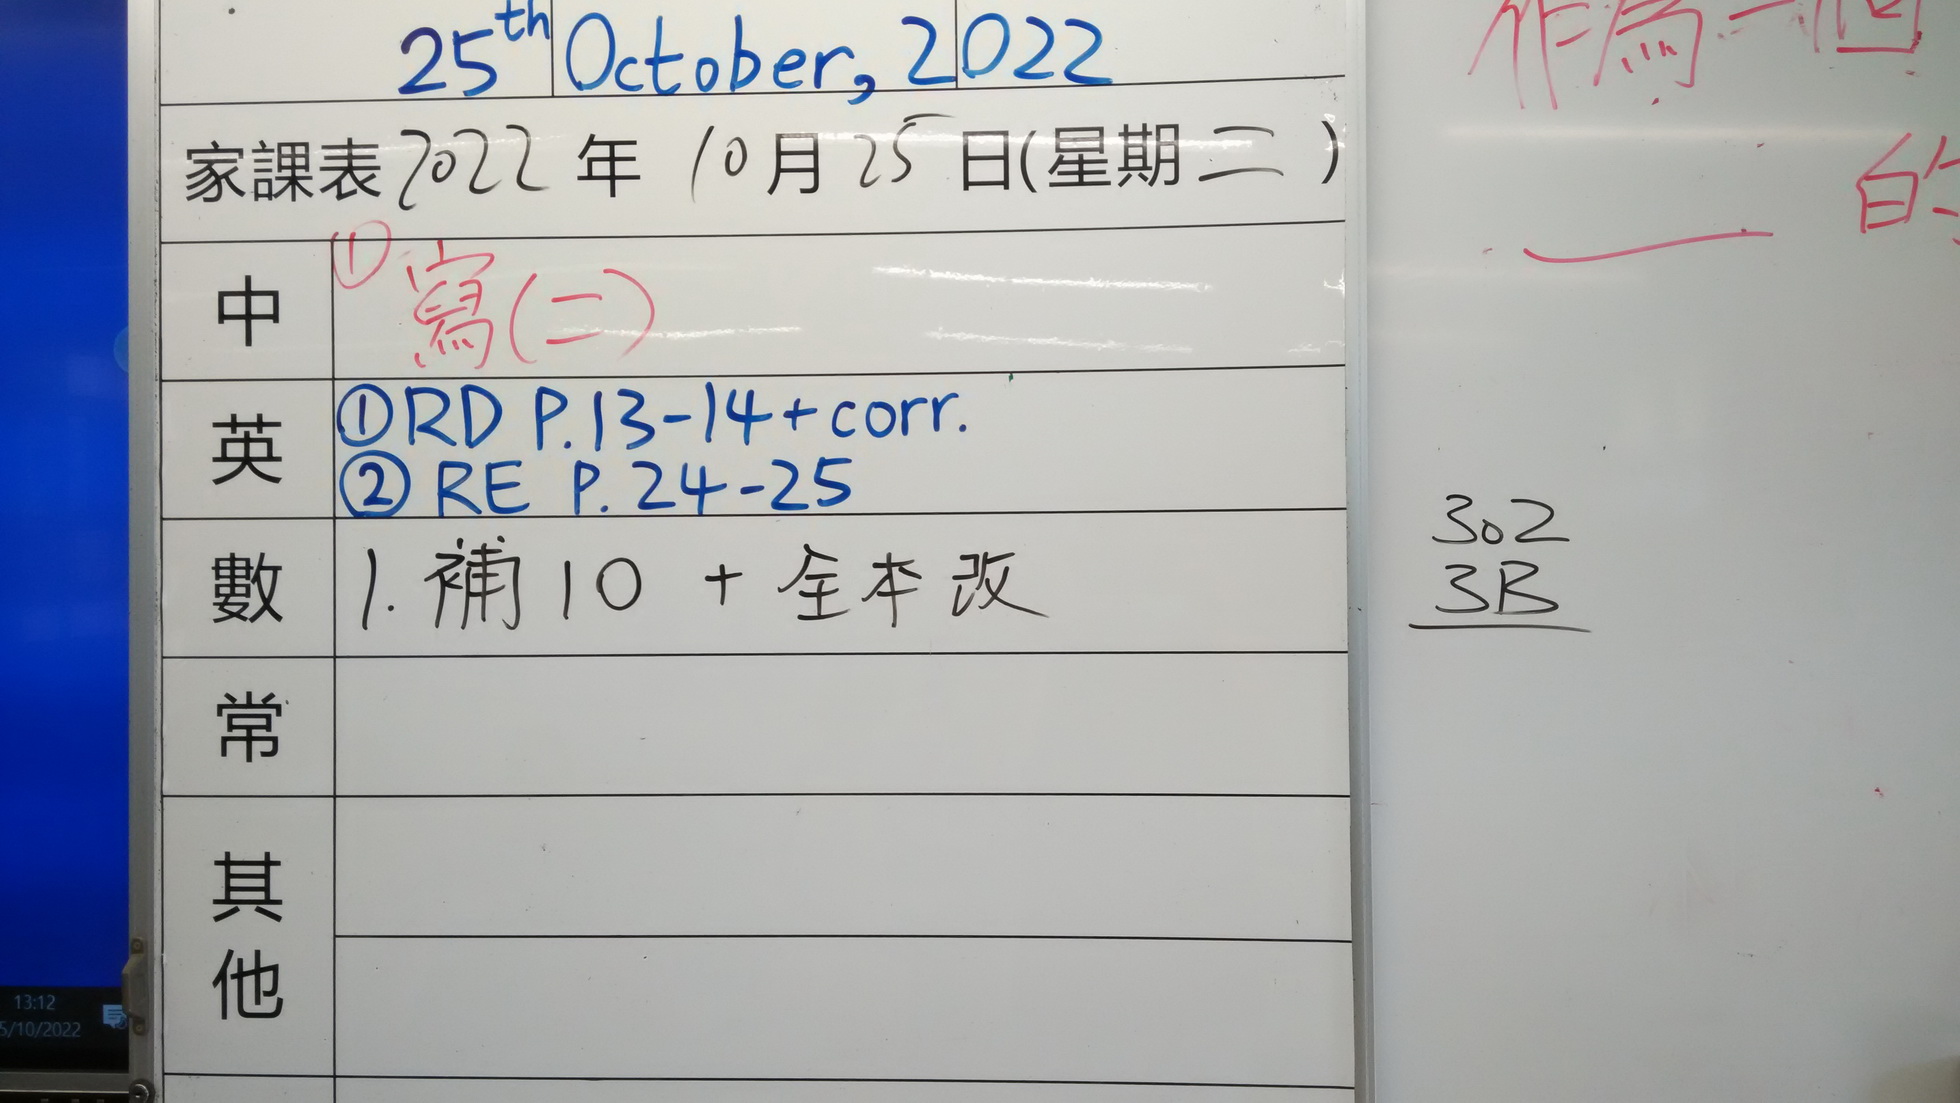 25th October, 2022
家課表 2022 年 10 月 25 日(星期 二 )
中 ① 寫(二)
英 ① RD P.13-14 + corr.
② RE P. 24-25
數 1. 補 10 + 全本改
常
其他
作為一個
的
302
3B
13:12
5/10/2022